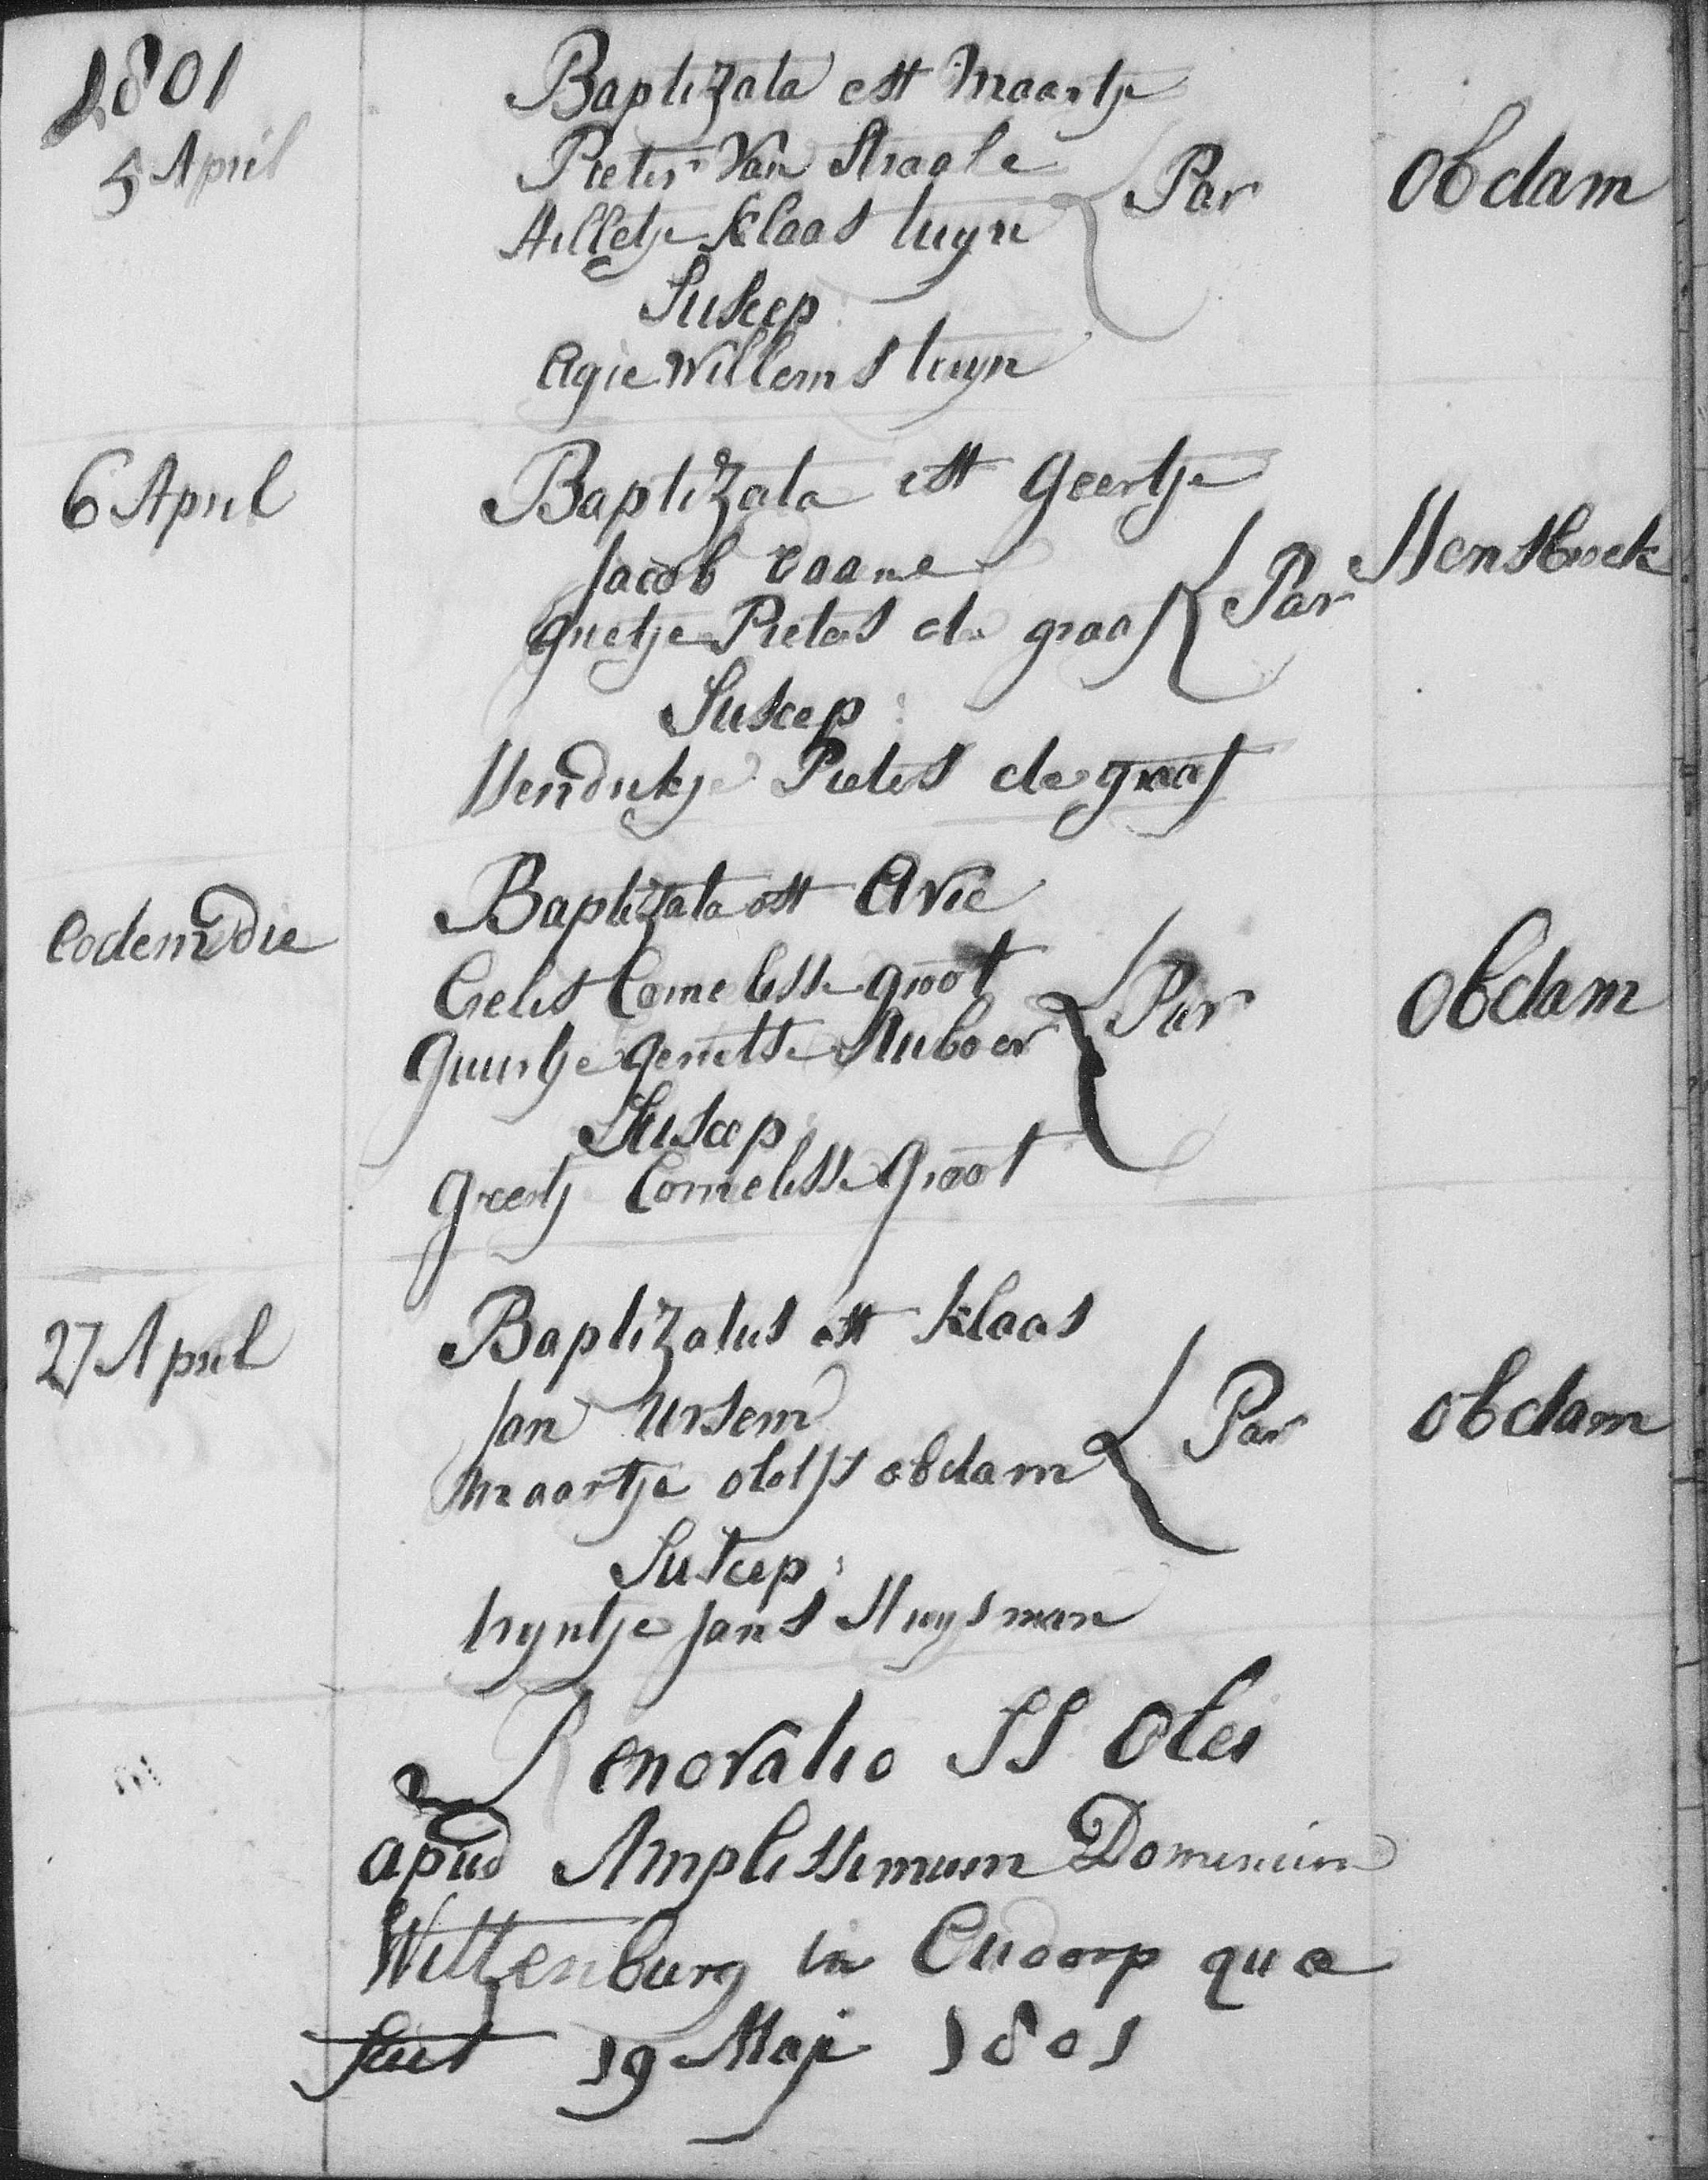 1801
5 April
Baptizata est Maartje
Pieter Van Straale
Hilletje Klaas tuyn
Par
Obdam
Suscep:
Agie Willems tuyn
6 April
Baptizata est Geertje
Jacob Daane
Grietje Pieters de graaf
Par
Hensbroek
Suscep:
Hendrikje Pieters de graaf
Eodem Die
Baptizata est Avie
Cornelisse groot
Guurtje gerritse
Par
Obdam
Suscep:
Greetj Cornelisse Groot
27 April
Baptizatus est Klaas
Jan Ursem
Maartje olofs obdam
Par
obdam
Suscep:
tryntje Jans Huysman
Renovatio SS Olei
apud Amplissimum Dominum
Wittenburg in Oudorp qua
fuit 19 Maji 1801